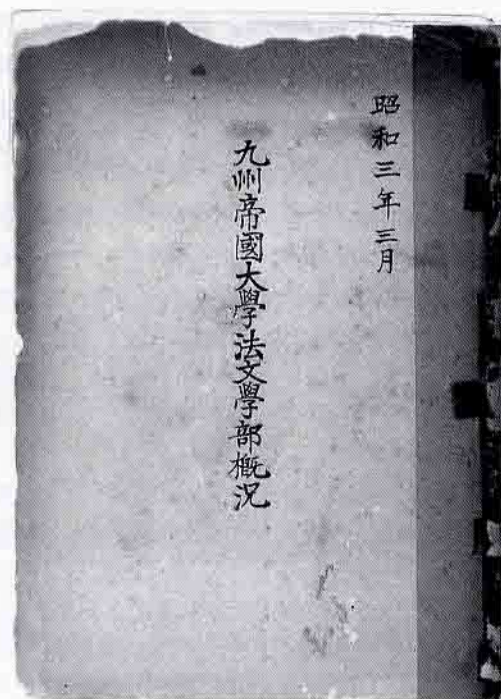 昭和三年三月
九州帝國大學法文學部概況